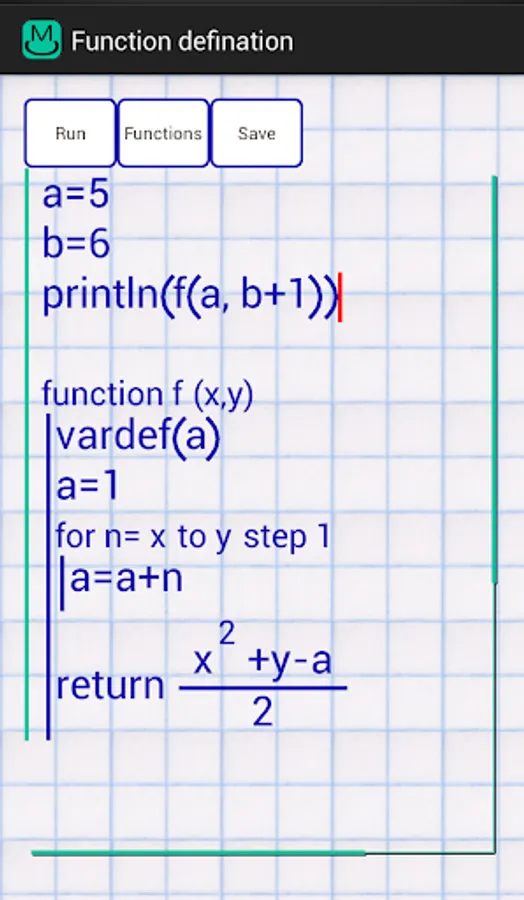 M
Function defination
Run Functions Save
a=5
b=6
println(f(a, b+1))
function f (x,y)
vardef(a)
a=1
for n= x to y step 1
a=a+n
return x² +y-a
2